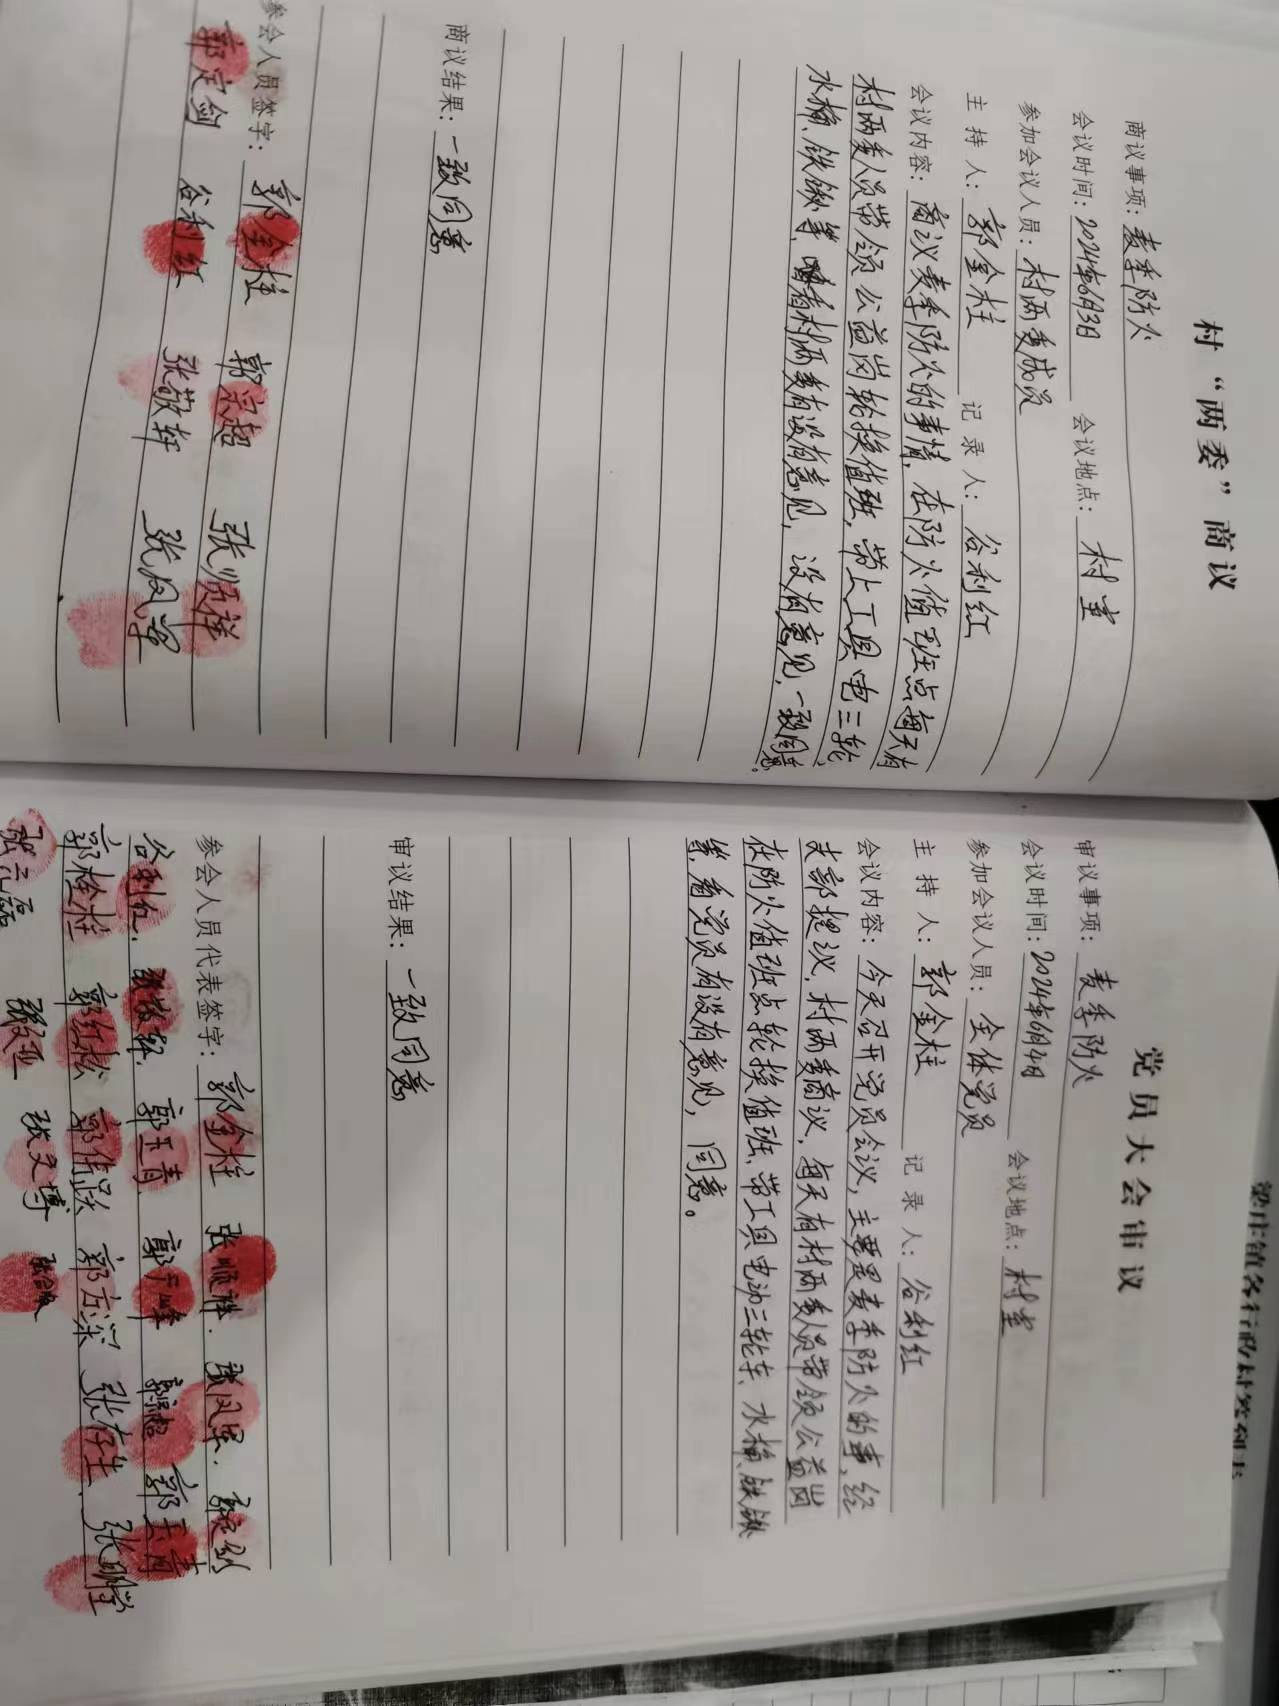 村“两委”商议
商议事项：麦季防火
会议时间：2024年6月3日 会议地点：村室
参加会议人员：村两委成员
主持人：郭金柱 记录人：谷利红
会议内容：商议麦季防火的事情，在防火值班点每天有
村两委人员带领公益岗轮换值班，带上工具电三轮、
水桶、铁锹等，看村两委有没有意见，没有意见，一致同意。
商议结果：一致同意
参会人员签字：郭金柱 郭宗超 张顺祥
郭定剑 谷利红 张敬轩 张凤军
党员大会审议
审议事项：麦季防火
会议时间：2024年6月4日 会议地点：村室
参加会议人员：全体党员
主持人：郭金柱 记录人：谷利红
会议内容：今天召开党员会议，主要是麦季防火的事，经
支部提议，村两委商议，每天有村两委人员带领公益岗
在防火值班点轮换值班，带工具电动三轮车、水桶、铁锹
等，看党员有没有意见，同意。
审议结果：一致同意
参会人员代表签字：郭金柱 张顺祥 张凤军
谷利红 张敬轩 郭玉青 郭宗超
郭栓柱 郭红松 张存生
张文亚 张文博
梁庄镇各行政村签到表